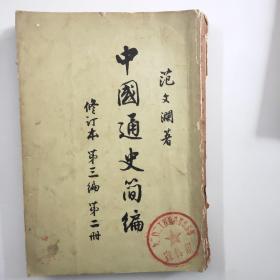 范文瀾著
中國通史簡编
修订本 第三编 第二册